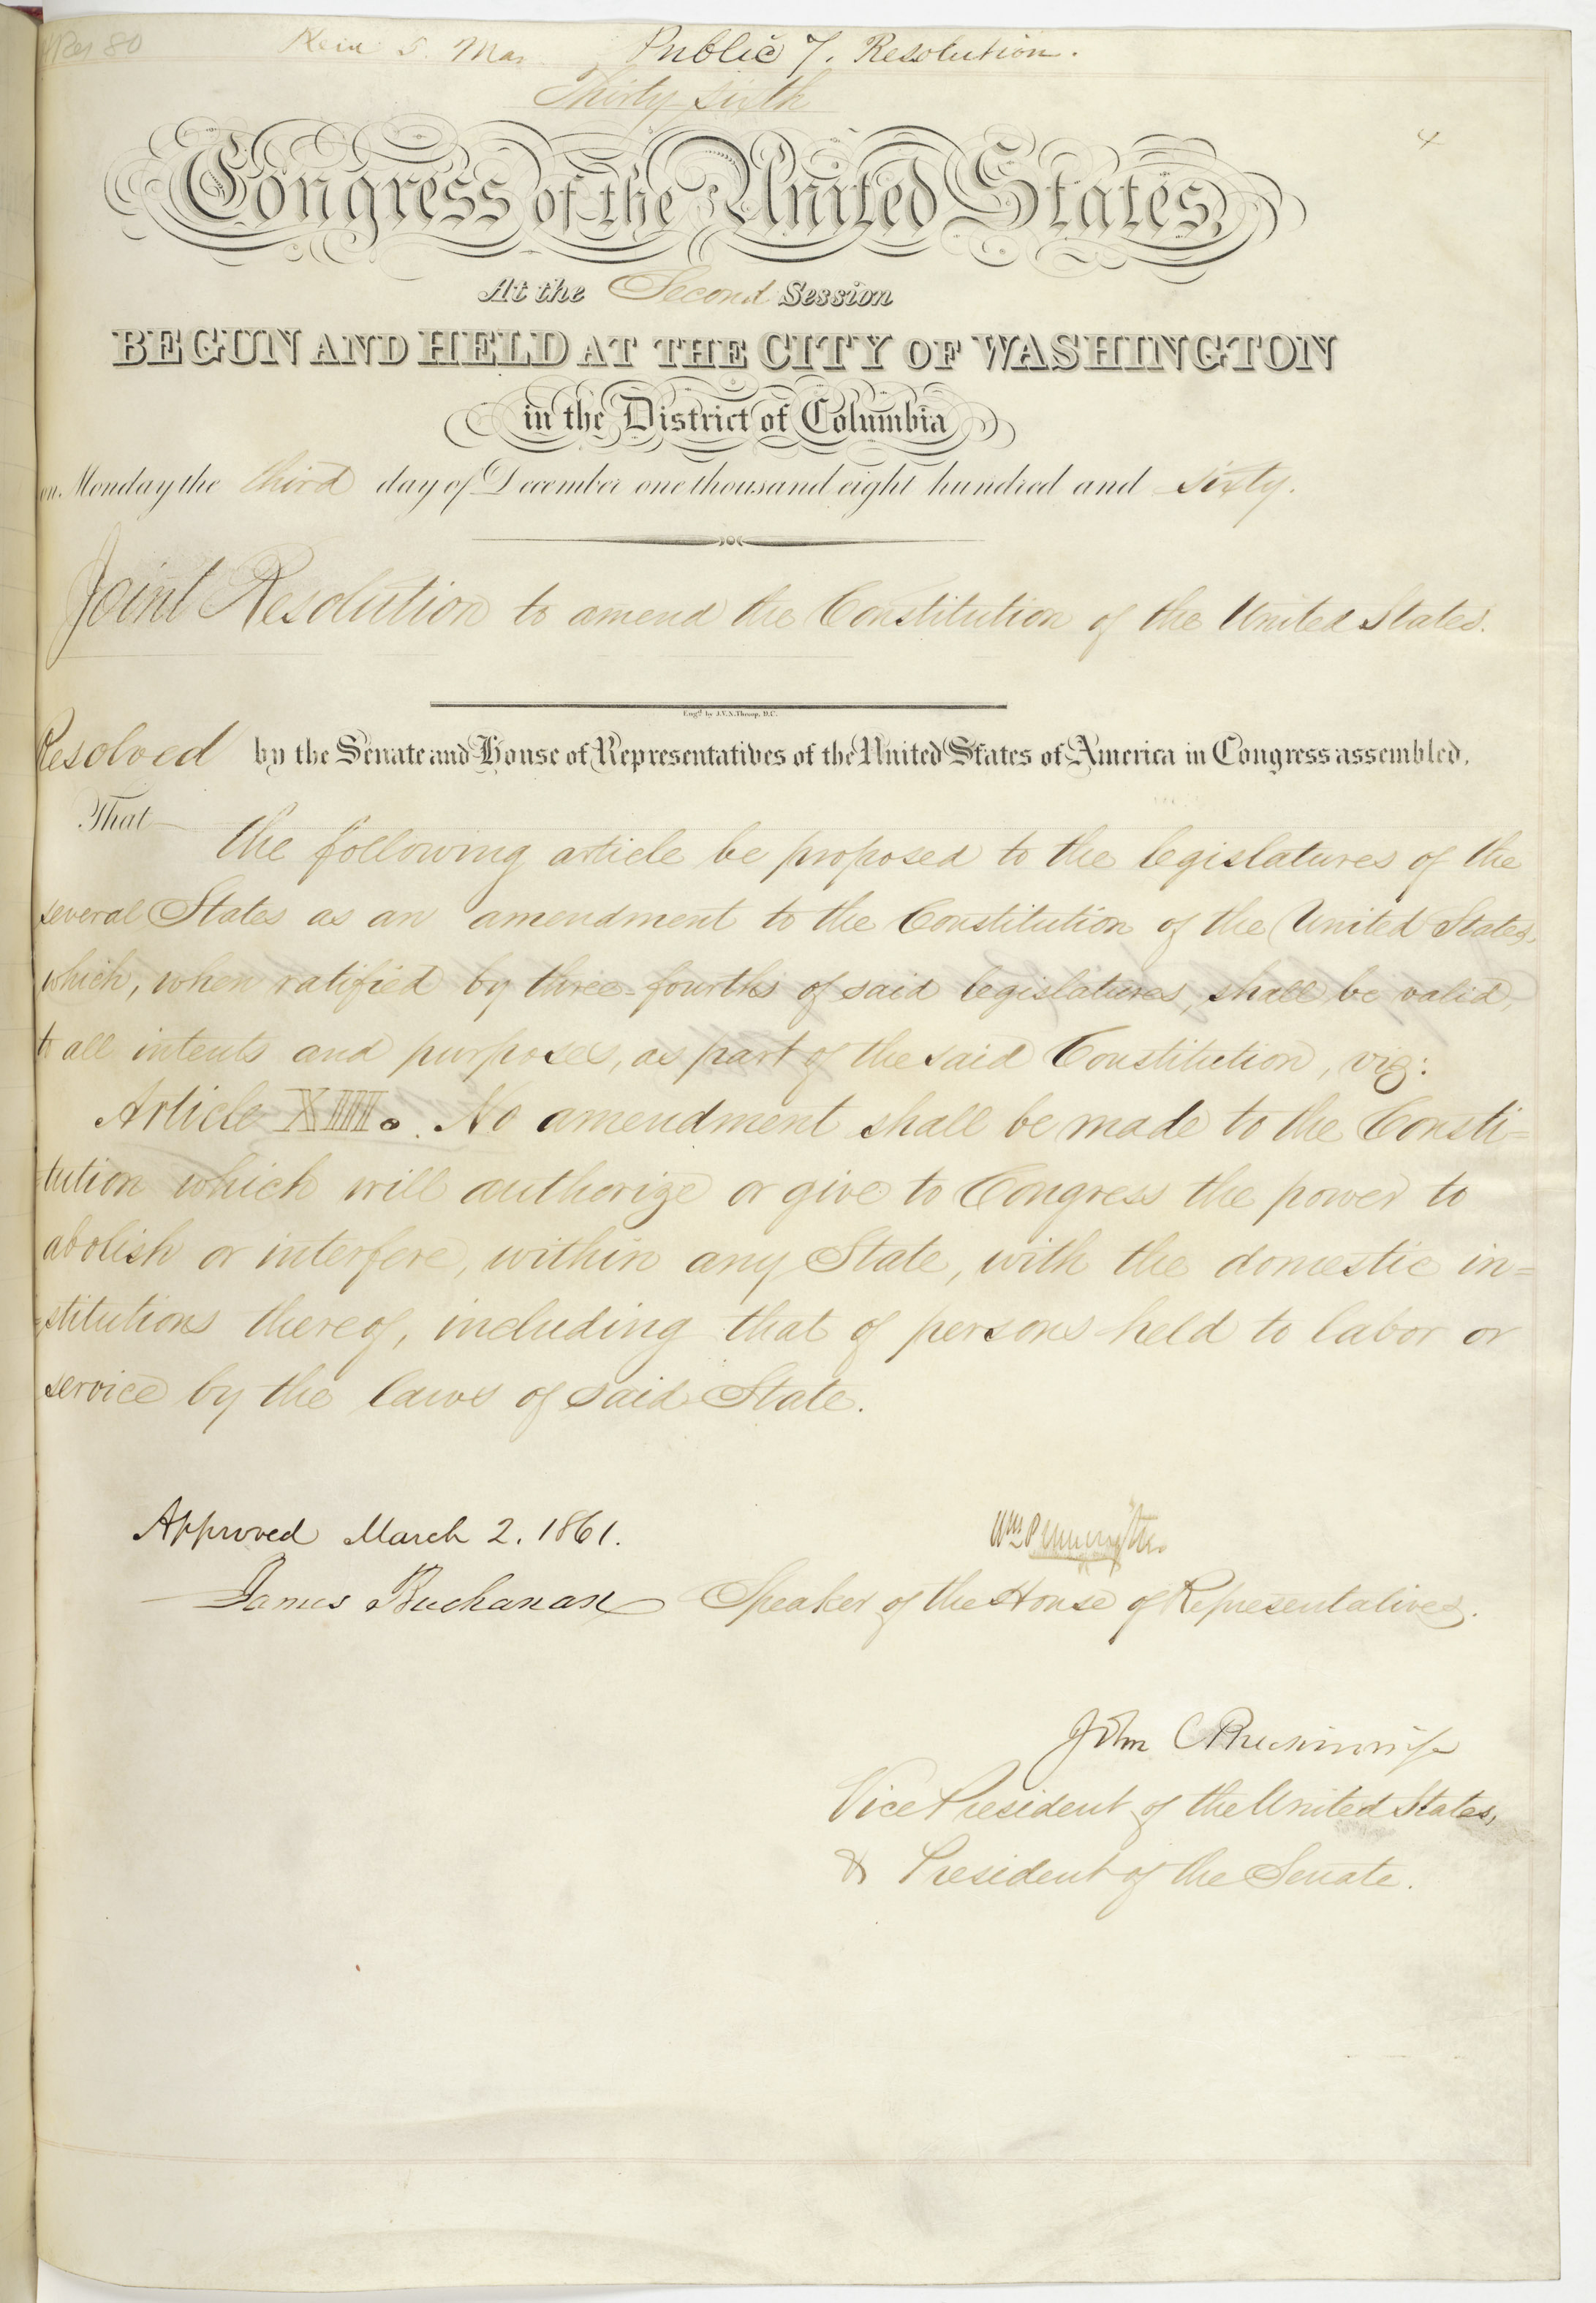 HRes 80 5 Mar Public 7. Resolution.
Thirty sixth
4
Congress of the United States,
At the Second Session
BEGUN AND HELD AT THE CITY OF WASHINGTON
in the District of Columbia
on Monday the third day of December one thousand eight hundred and sixty.
Joint Resolution to amend the Constitution of the United States.
Engd. by J.V.N. Throop, D.C.
Resolved by the Senate and House of Representatives of the United States of America in Congress assembled,
That
the following article be proposed to the legislatures of the
several States as an amendment to the Constitution of the United States,
which, when ratified by three-fourths of said legislatures, shall be valid,
to all intents and purposes, as part of the said Constitution, viz:
Article XIII. No amendment shall be made to the Consti=
tution which will authorize or give to Congress the power to
abolish or interfere, within any State, with the domestic in=
stitutions thereof, including that of persons held to labor or
service by the laws of said State.
Approved March 2. 1861.
Wm Pennington
James Buchanan Speaker of the House of Representatives.
John C Breckinridge
Vice President of the United States,
& President of the Senate.